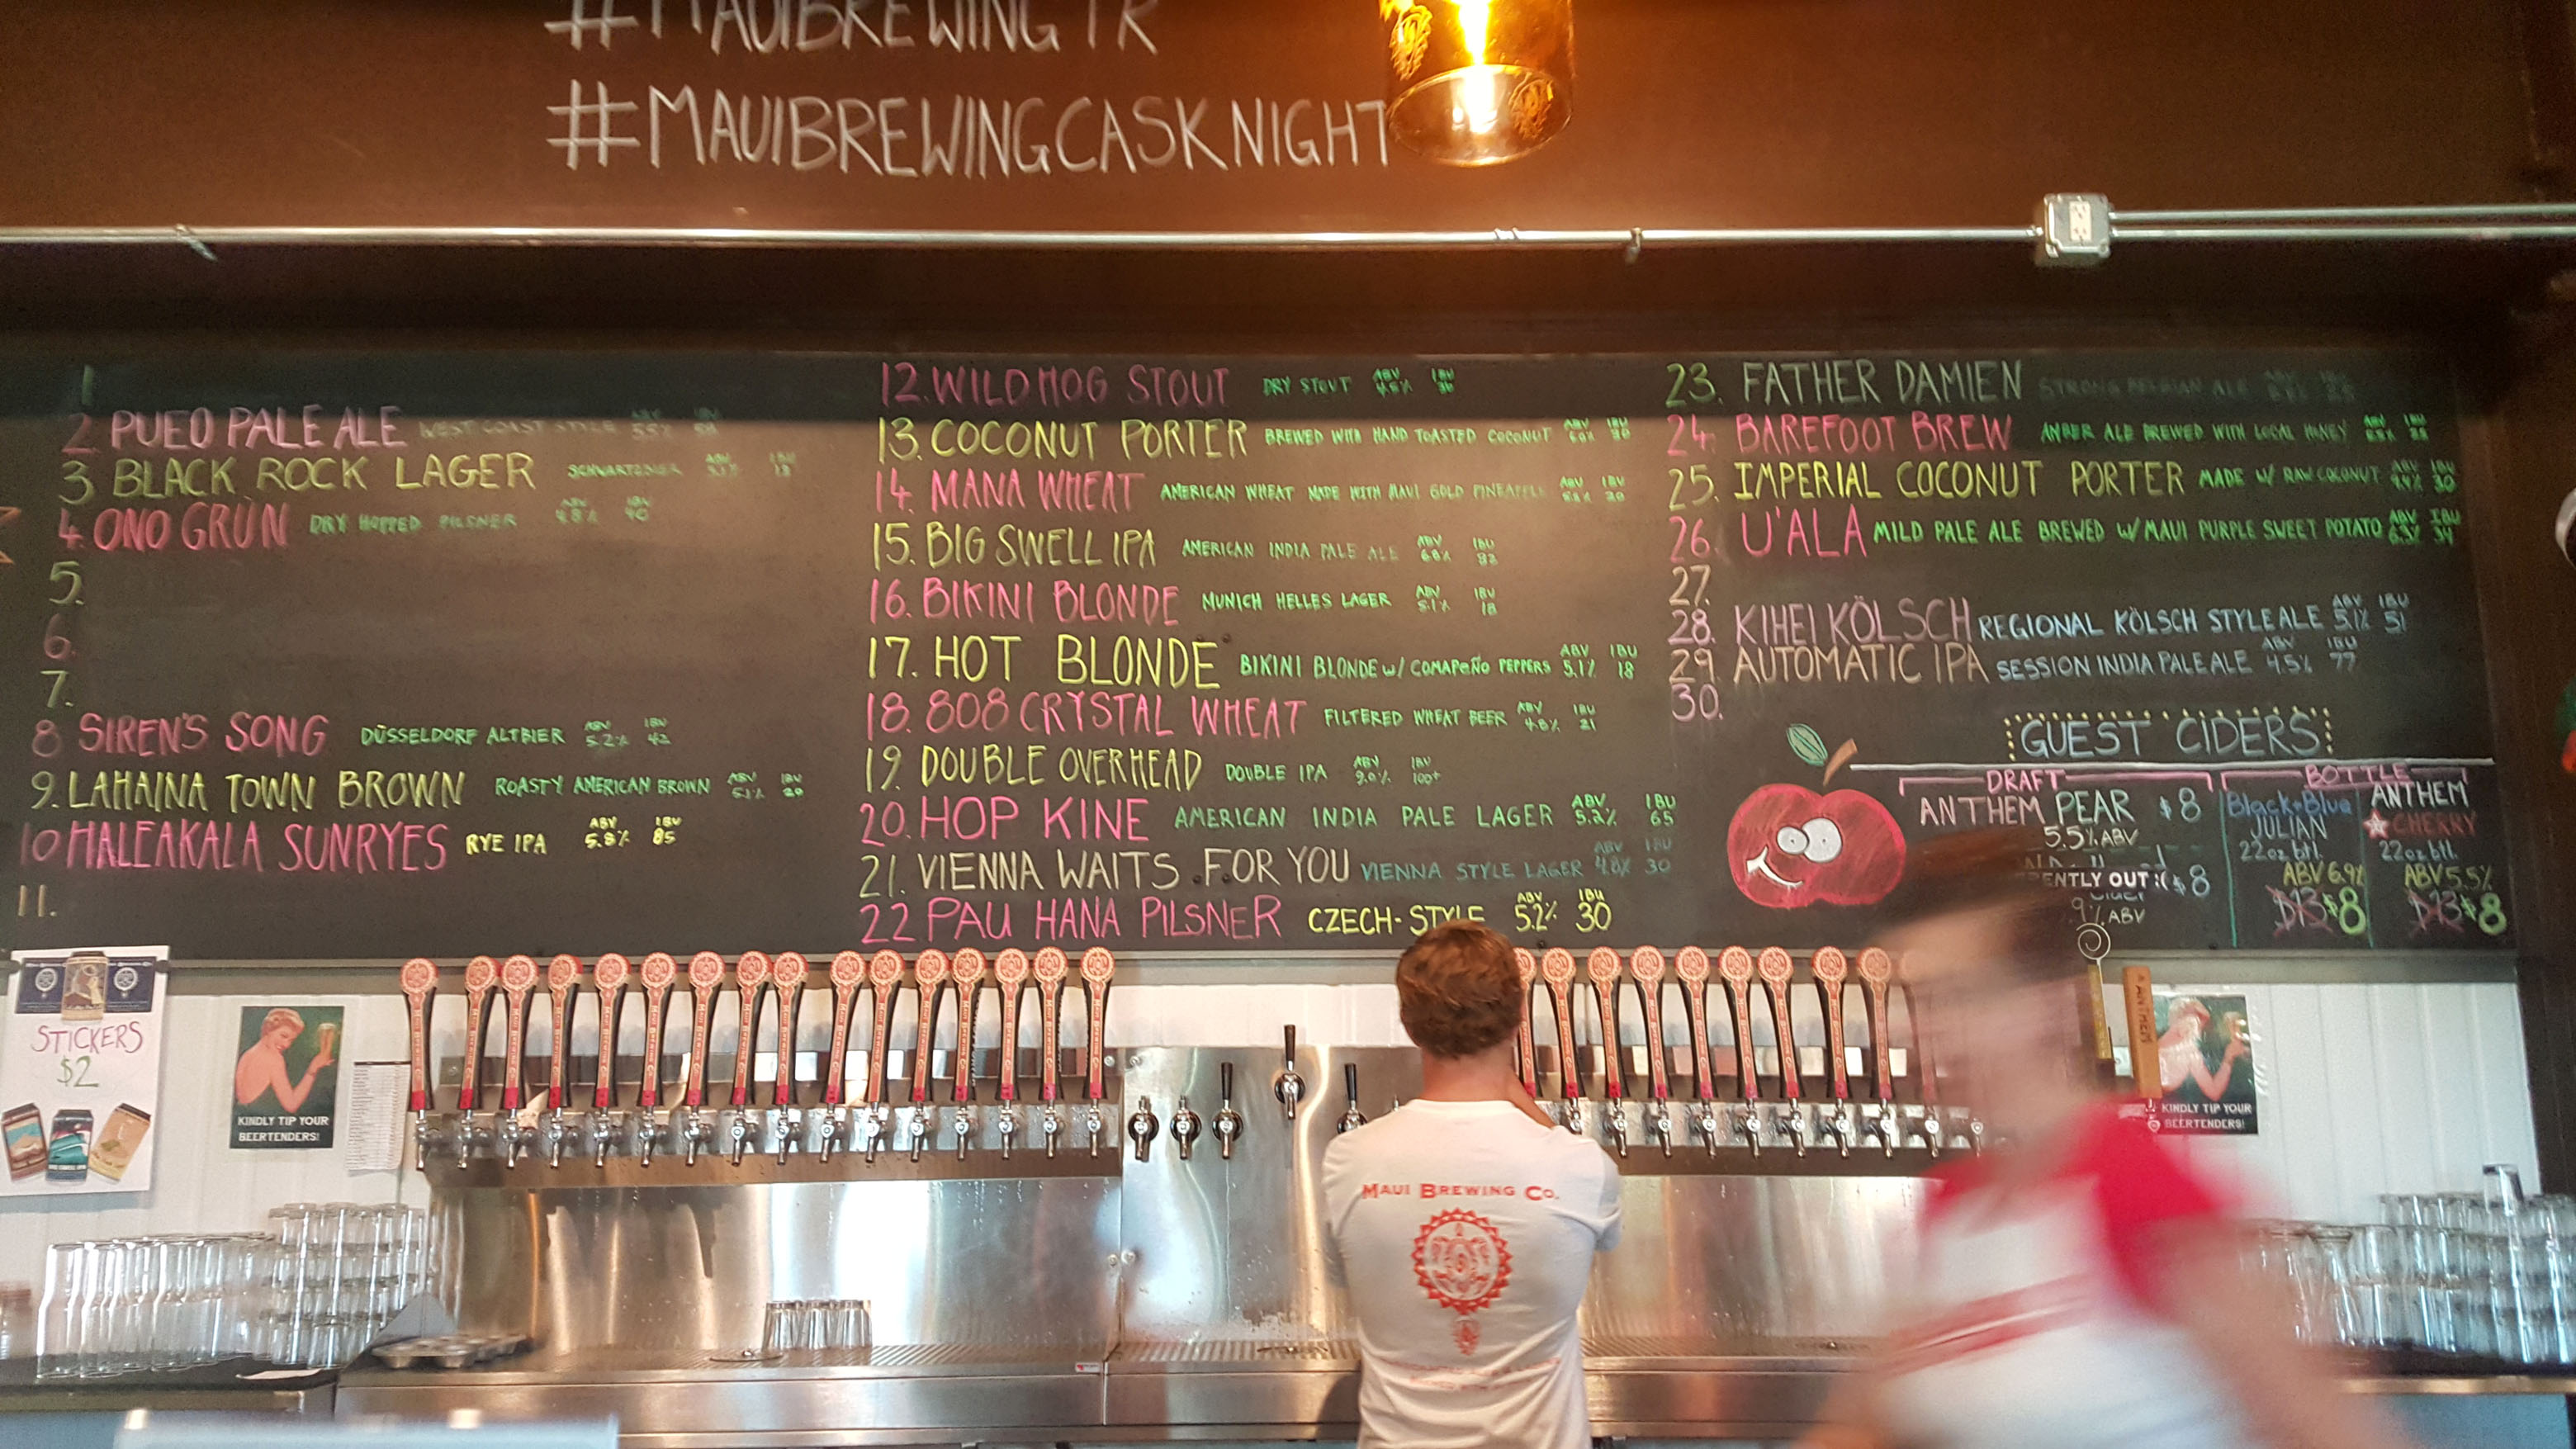 #MAUIBREWINGTR
#MAUIBREWINGCASKNIGHT
1
2. PUEO PALE ALE WEST COAST STYLE ABV 5.5% IBU
3 BLACK ROCK LAGER SCHWARTZBIER ABV 5.1% IBU 13
4. ONO GRÜN DRY HOPPED PILSNER ABV 4.8% IBU 40
5.
6.
7.
8 SIREN'S SONG DÜSSELDORF ALTBIER ABV 5.2% IBU 42
9. LAHAINA TOWN BROWN ROASTY AMERICAN BROWN ABV 5.1% IBU 20
10 HALEAKALA SUNRYES RYE IPA ABV 5.8% IBU 85
11.
12. WILD HOG STOUT DRY STOUT ABV 4.6% IBU
13. COCONUT PORTER BREWED WITH HAND TOASTED COCONUT ABV 6.0% IBU 30
14. MANA WHEAT AMERICAN WHEAT MADE WITH MAUI GOLD PINEAPPLE ABV IBU 20
15. BIG SWELL IPA AMERICAN INDIA PALE ALE ABV 6.8% IBU
16. BIKINI BLONDE MUNICH HELLES LAGER ABV 5.1% IBU 18
17. HOT BLONDE BIKINI BLONDE w/ COMAPEÑO PEPPERS ABV 5.1% IBU 18
18. 808 CRYSTAL WHEAT FILTERED WHEAT BEER ABV 4.8% IBU 21
19. DOUBLE OVERHEAD DOUBLE IPA ABV 9.0% IBU 100+
20. HOP KINE AMERICAN INDIA PALE LAGER ABV 5.2% IBU 65
21. VIENNA WAITS FOR YOU VIENNA STYLE LAGER ABV 4.8% IBU 30
22 PAU HANA PILSNER CZECH-STYLE ABV 5.2% IBU 30
23. FATHER DAMIEN STRONG BELGIAN ALE ABV IBU
24. BAREFOOT BREW AMBER ALE BREWED WITH LOCAL HONEY ABV IBU
25. IMPERIAL COCONUT PORTER MADE W/ RAW COCONUT ABV 9.4% IBU 30
26. U'ALA MILD PALE ALE BREWED W/ MAUI PURPLE SWEET POTATO ABV 6.3% IBU 34
27.
28. KIHEI KÖLSCH REGIONAL KÖLSCH STYLE ALE ABV 5.1% IBU 51
29. AUTOMATIC IPA SESSION INDIA PALE ALE ABV 4.5% IBU 77
30.
GUEST CIDERS
DRAFT
ANTHEM PEAR $8
5.5% ABV
RENTLY OUT :( $8
CIDER
9% ABV
BOTTLE
Black+Blue
JULIAN
22oz btl.
ABV 6.9%
$13 $8
ANTHEM
CHERRY
22oz btl.
ABV 5.5%
$13 $8
STICKERS
$2
KINDLY TIP YOUR
BEERTENDERS!
MAUI BREWING CO.
KINDLY TIP YOUR
BEERTENDERS!